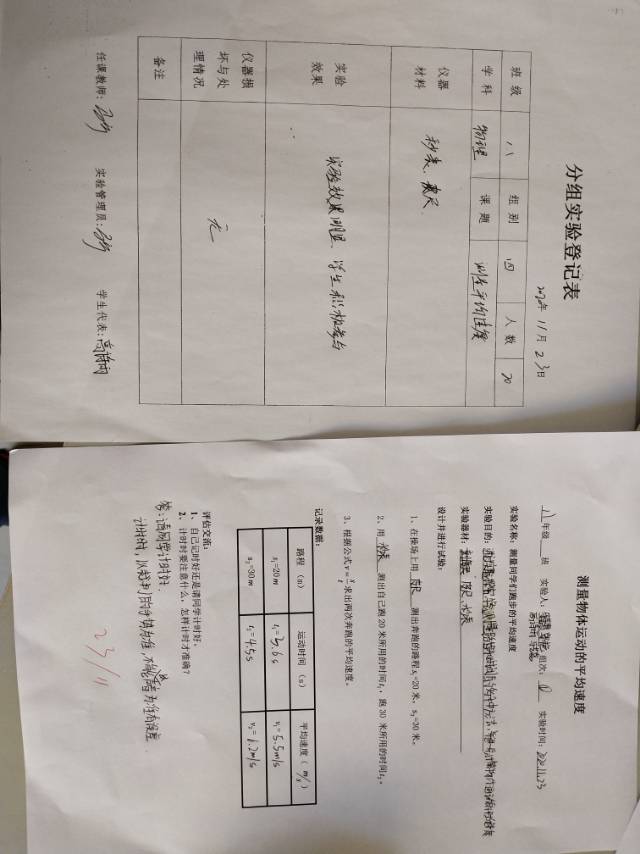 分组实验登记表
2020年11月23日
班级 八 组别 四 人数 20
学科 物理 课题 测量平均速度
仪器材料 秒表、皮尺
实验效果 实验效果明显、学生积极参与
仪器损坏与处理情况 无
备注
任课教师: 实验管理员: 学生代表:
测量物体运动的平均速度
八年级 班 实验人: 组次: 四 实验时间: 2020.11.23
实验名称: 测量同学们跑步的平均速度
实验目的:
实验器材: 皮尺、秒表
设计并进行试验:
1、在操场上用 皮尺 测出奔跑的路程s₁=20米、s₂=30米。
2、用 秒表 测出自己跑20米所用的时间t₁,跑30米所用的时间t₂。
3、根据公式v=s/t求出两次奔跑的平均速度。
记录数据:
路程(m) 运动时间(s) 平均速度(m/s)
s₁=20m t₁=3.6s v₁=5.5m/s
s₂=30m t₂=4.5s v₂=6.7m/s
评估交流:
1、自己记时好还是请同学计时好。
2、计时时要注意什么,怎样计时才准确?
答:请同学计时好
23/11